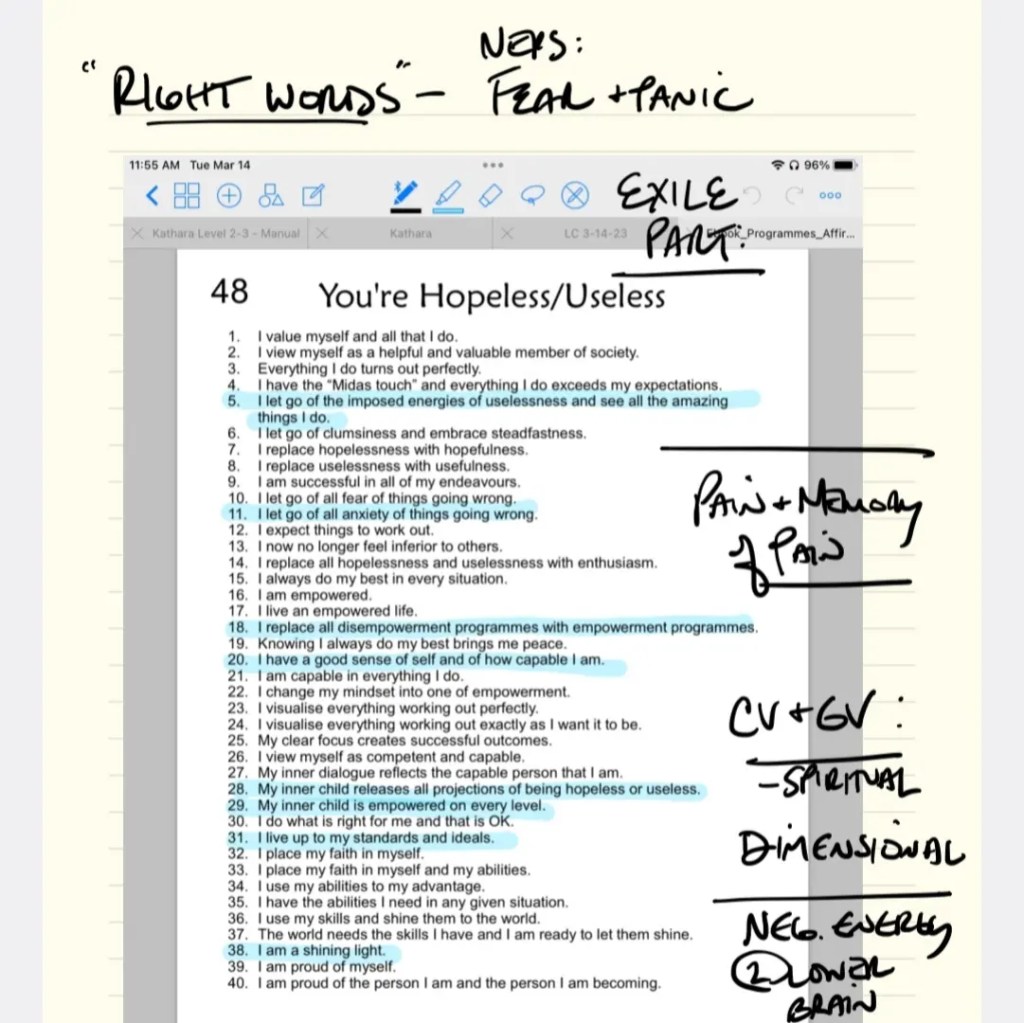 NERS:
"RIGHT WORDS" - FEAR + PANIC
11:55 AM Tue Mar 14
96%
EXILE
PART:
Kathara Level 2-3 - Manual
Kathara
LC 3-14-23
ook_Programmes_Affir...
48 You're Hopeless/Useless
1. I value myself and all that I do.
2. I view myself as a helpful and valuable member of society.
3. Everything I do turns out perfectly.
4. I have the "Midas touch" and everything I do exceeds my expectations.
5. I let go of the imposed energies of uselessness and see all the amazing
things I do.
6. I let go of clumsiness and embrace steadfastness.
7. I replace hopelessness with hopefulness.
8. I replace uselessness with usefulness.
9. I am successful in all of my endeavours.
10. I let go of all fear of things going wrong.
11. I let go of all anxiety of things going wrong.
12. I expect things to work out.
13. I now no longer feel inferior to others.
14. I replace all hopelessness and uselessness with enthusiasm.
15. I always do my best in every situation.
16. I am empowered.
17. I live an empowered life.
18. I replace all disempowerment programmes with empowerment programmes.
19. Knowing I always do my best brings me peace.
20. I have a good sense of self and of how capable I am.
21. I am capable in everything I do.
22. I change my mindset into one of empowerment.
23. I visualise everything working out perfectly.
24. I visualise everything working out exactly as I want it to be.
25. My clear focus creates successful outcomes.
26. I view myself as competent and capable.
27. My inner dialogue reflects the capable person that I am.
28. My inner child releases all projections of being hopeless or useless.
29. My inner child is empowered on every level.
30. I do what is right for me and that is OK.
31. I live up to my standards and ideals.
32. I place my faith in myself.
33. I place my faith in myself and my abilities.
34. I use my abilities to my advantage.
35. I have the abilities I need in any given situation.
36. I use my skills and shine them to the world.
37. The world needs the skills I have and I am ready to let them shine.
38. I am a shining light.
39. I am proud of myself.
40. I am proud of the person I am and the person I am becoming.
PAIN + MEMORY
of PAIN
CV + GV:
- SPIRITUAL
DIMENSIONAL
NEG. ENERGY
2 LOWER
BRAIN